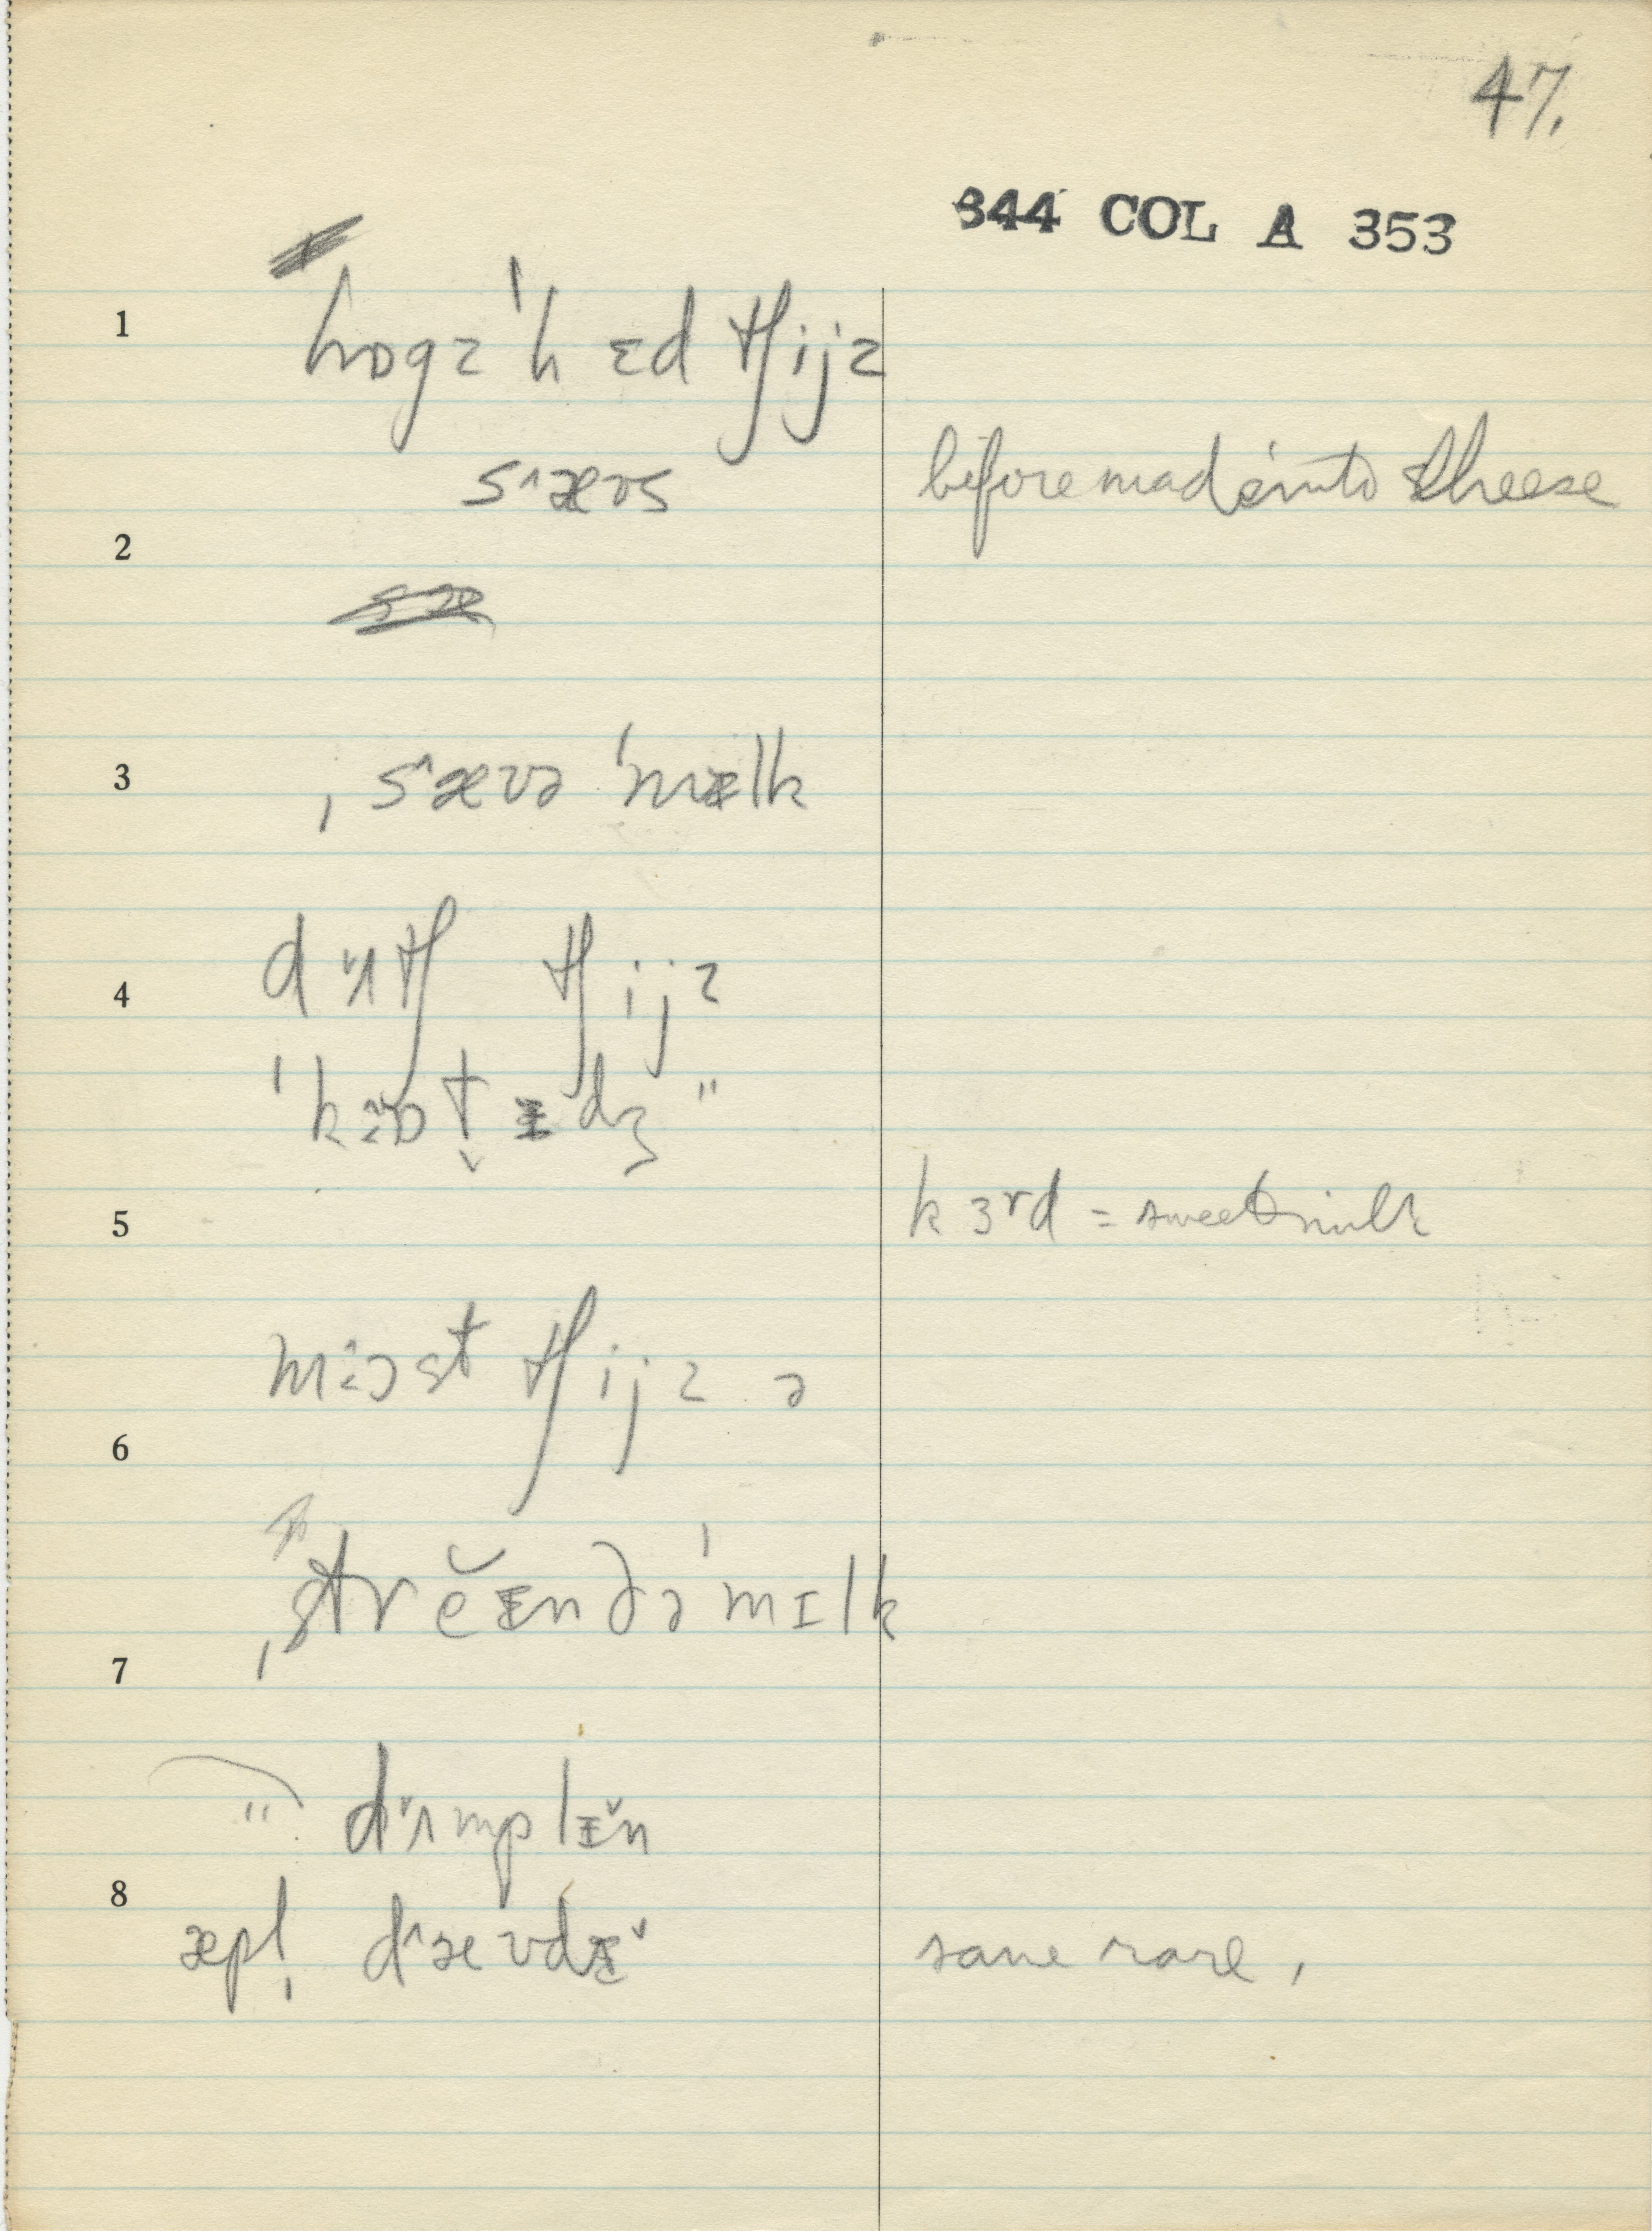 47.
344 COL A 353
1 hɒgzˈhɛd tʃijz
s˄æʊs before made into cheese
2
3 ˌs˄æʊə ˈmɪlk
4 d˅ʌtʃ tʃijz
ˈkɒt̬ɪdʒ "
5 kɜrd = sweet milk
most tʃijz ə
6
ˌstrĕɪndə ˈmɪlk
7
" d˅ʌmplɪ˅n
8
æpl̩ d˄æʊdɪ˅ same rare,